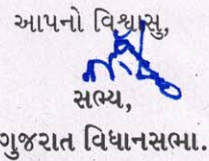 આપનો વિશ્વાસુ,
સભ્ય,
ગુજરાત વિધાનસભા.